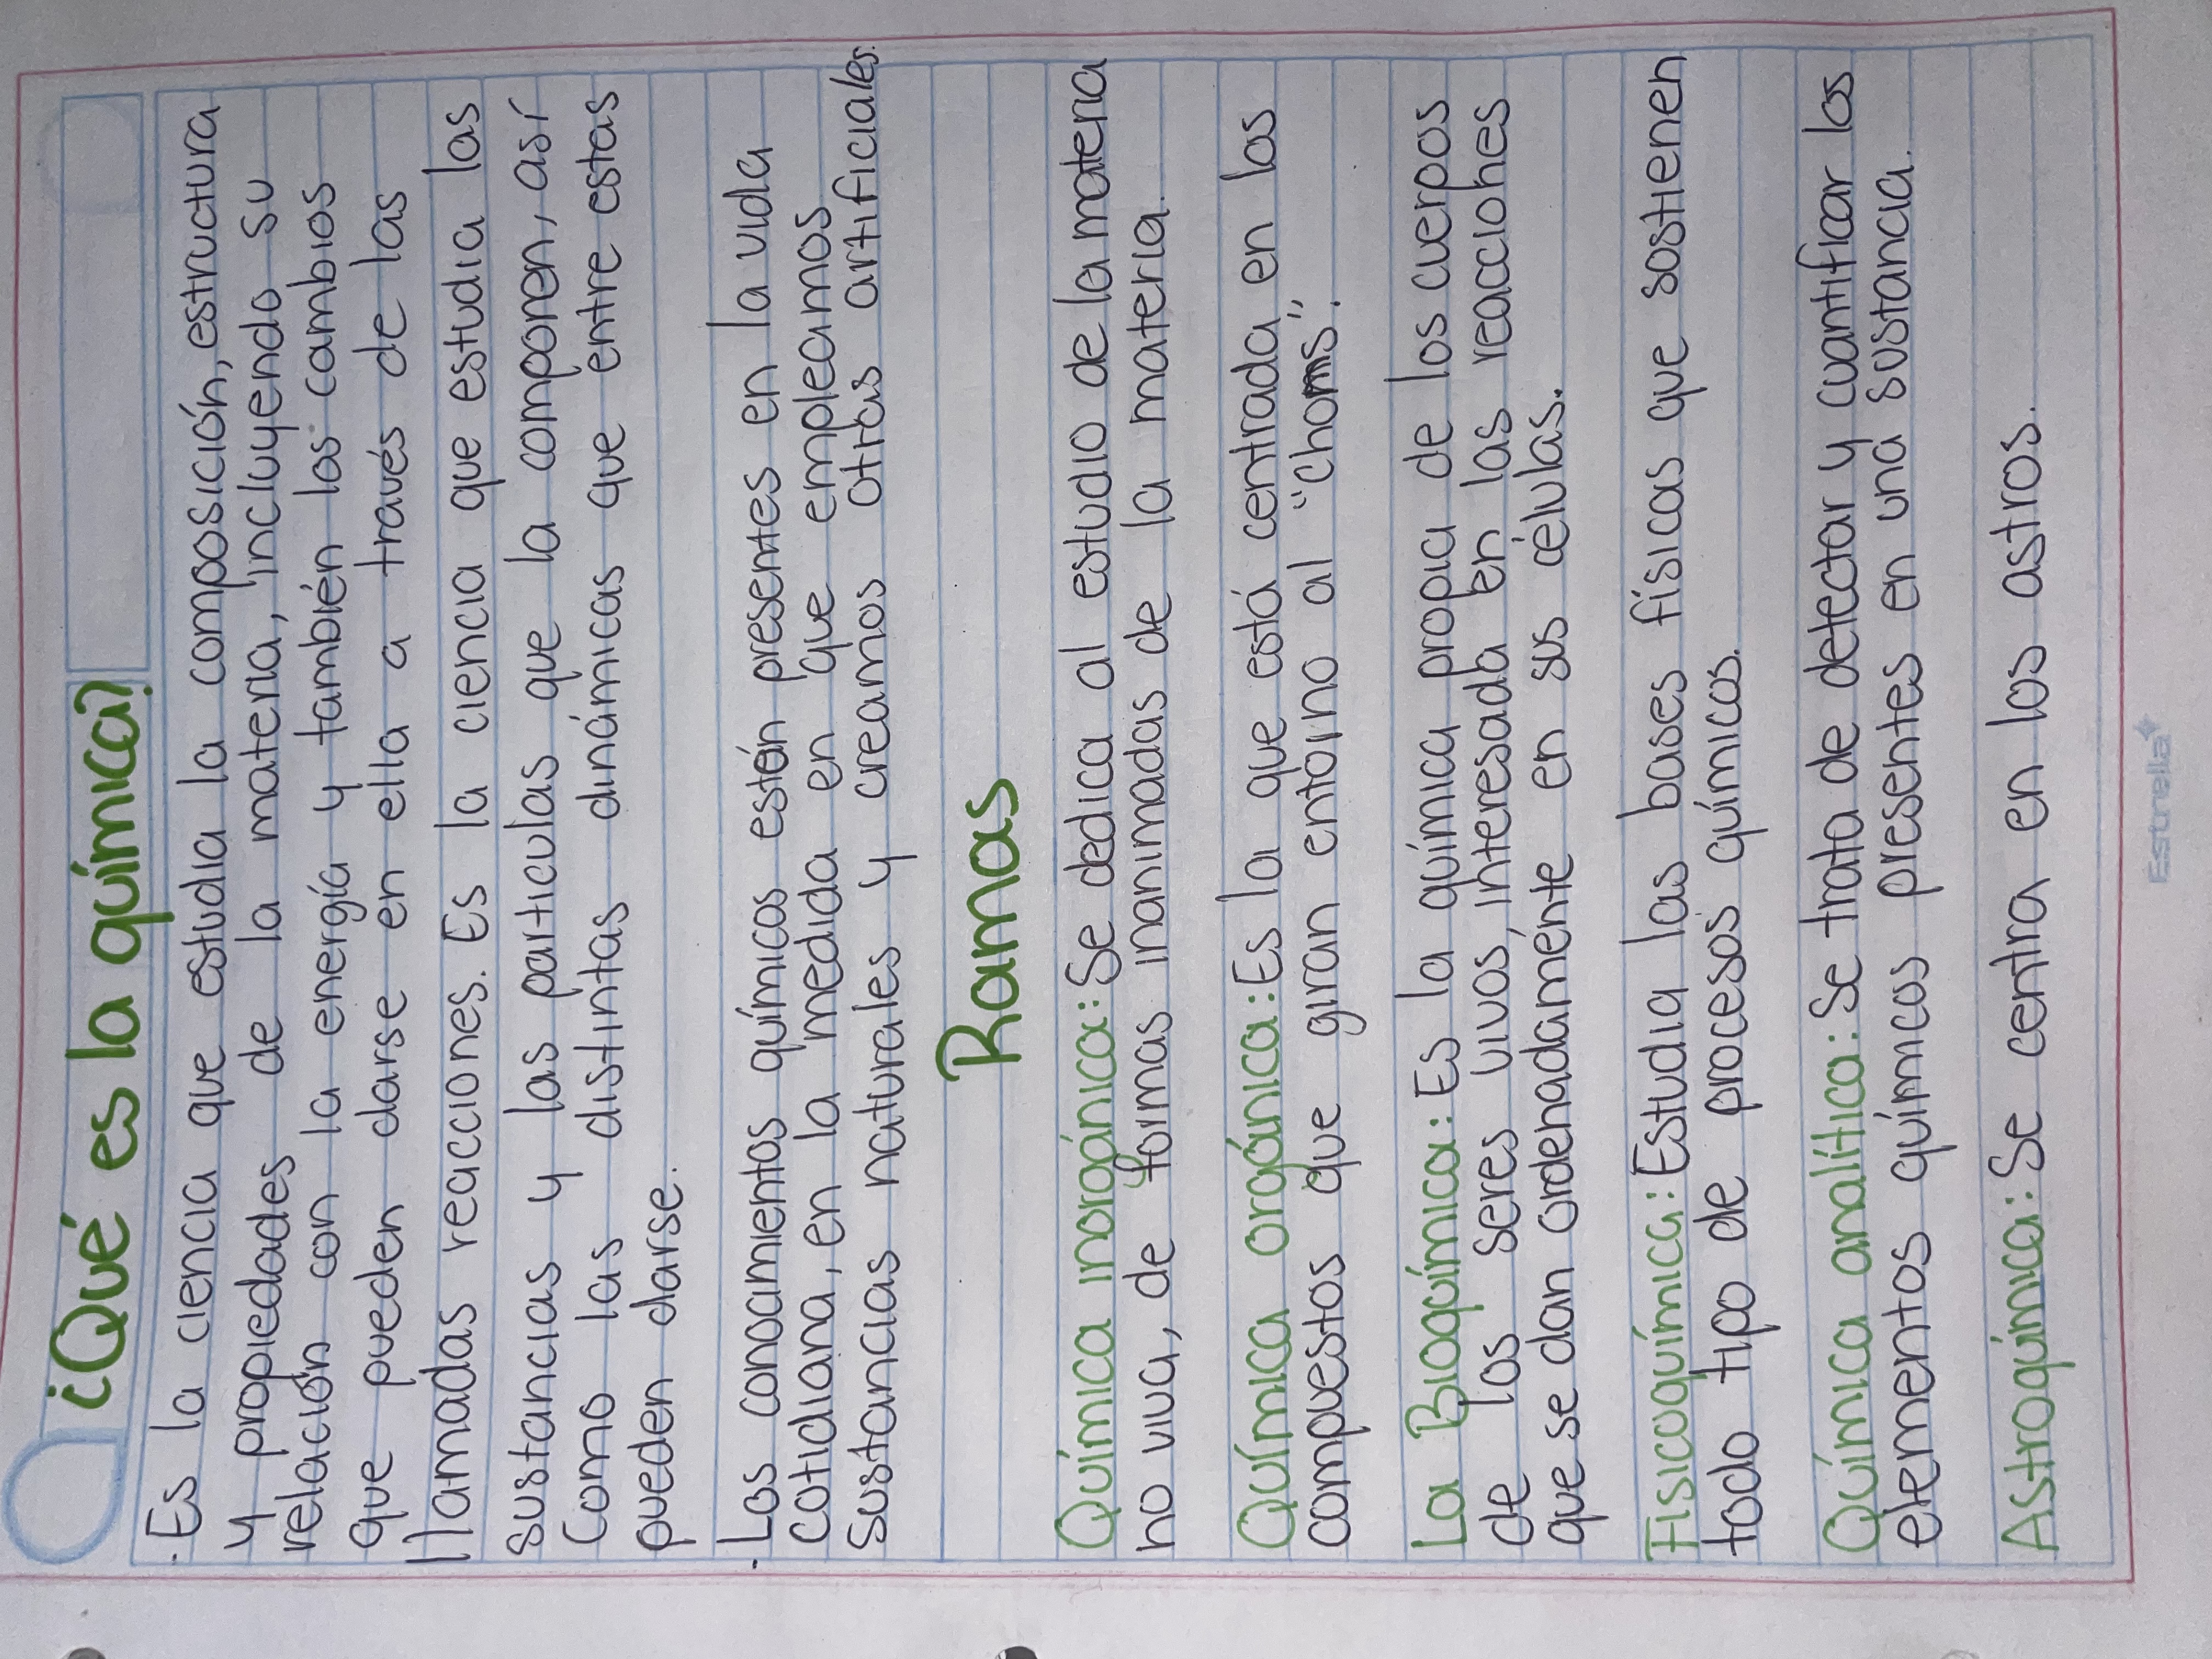 ¿Qué es la química?
· Es la ciencia que estudia la composición, estructura
y propiedades de la materia, incluyendo su
relación con la energía y también los cambios
que pueden darse en ella a través de las
llamadas reacciones. Es la ciencia que estudia las
sustancias y las particulas que la componen, así
como las distintas dinámicas que entre estas
pueden darse.
· Los conocimientos químicos están presentes en la vida
cotidiana, en la medida en que empleamos
sustancias naturales y creamos otras artificiales.
Ramas
Química inorgánica: Se dedica al estudio de la materia
no viva, de formas inanimadas de la materia.
Química orgánica: Es la que está centrada en los
compuestos que giran entorno al "choms".
La Bioquímica: Es la química propia de los cuerpos
de los seres vivos, interesada en las reacciones
que se dan ordenadamente en sus células.
Fisicoquímica: Estudia las bases físicas que sostienen
todo tipo de procesos químicos.
Química analítica: Se trata de detectar y cuantificar los
elementos químicos presentes en una sustancia.
Astroquímica: Se centra en los astros.
Estrella